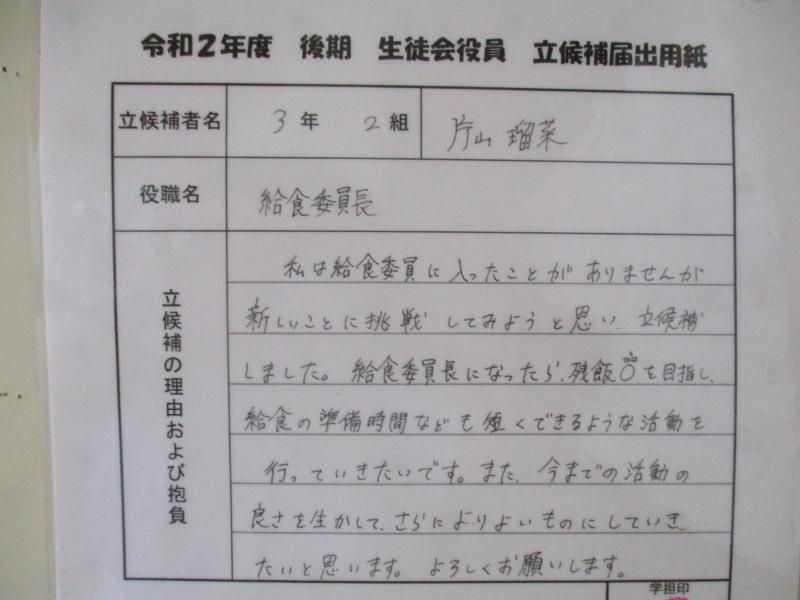 令和2年度 後期 生徒会役員 立候補届出用紙
立候補者名 3年 2組 片山 瑠菜
役職名 給食委員長
立候補の理由および抱負
私は給食委員に入ったことがありませんが
新しいことに挑戦してみようと思い、立候補
しました。給食委員長になったら、残飯0を目指し、
給食の準備時間なども短くできるような活動を
行っていきたいです。また、今までの活動の
良さを生かして、さらによりよいものにしていき
たいと思います。よろしくお願いします。
学担印